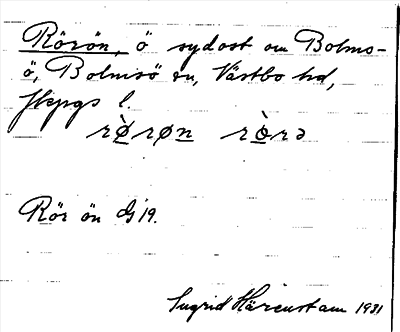 Rörön, ö sydost om Bolms-
ö, Bolmsö sn, Västbo hd,
Jkpgs l.
rø̀røn ròrə
Rör ön Gj 19.
Ingrid Härenstam 1931